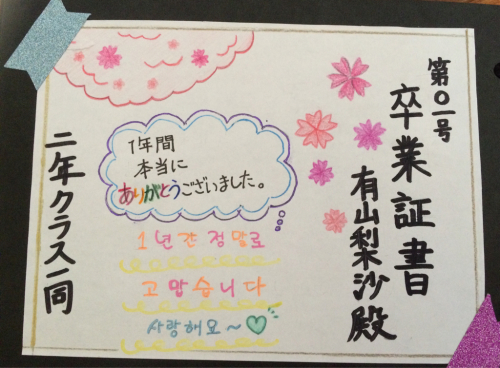 第〇一号
卒業証書
有山梨沙殿
1年間
本当に
ありがとうございました。
1년간 정말로
고맙습니다
사랑해요~♡
二年クラス一同